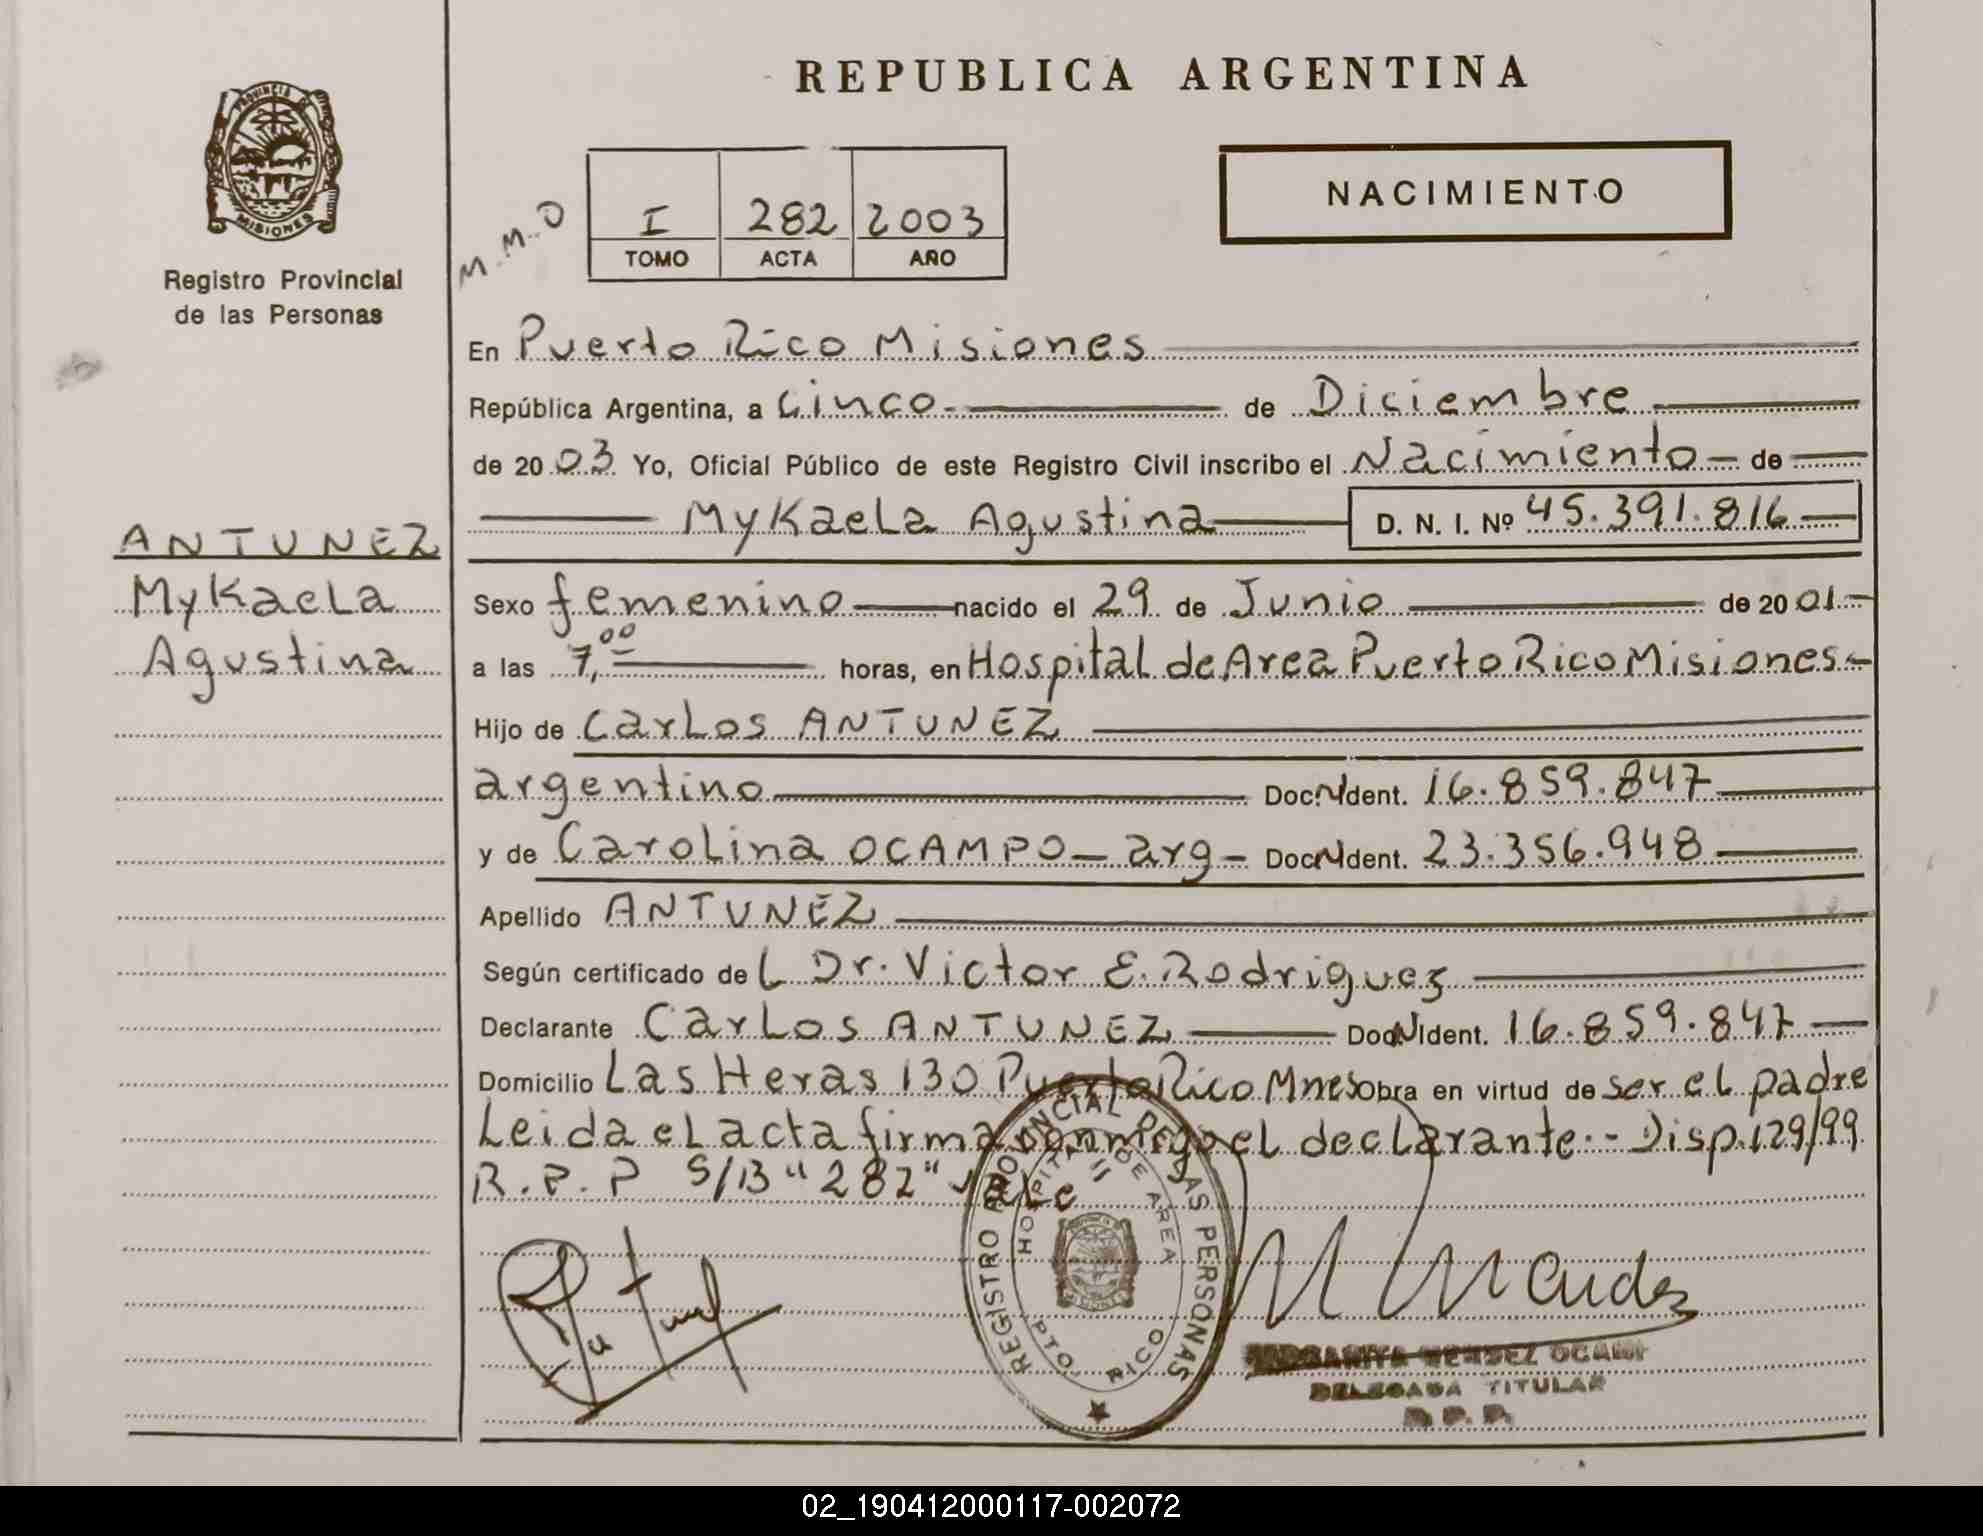 REPUBLICA ARGENTINA
PROVINCIA DE
MISIONES
Registro Provincial
de las Personas
M.M.O
I 282 2003
TOMO ACTA AÑO
NACIMIENTO
En Puerto Rico Misiones
República Argentina, a Cinco de Diciembre
de 2003 Yo, Oficial Público de este Registro Civil inscribo el Nacimiento de
Mykaela Agustina D. N. I. Nº 45.391.816
ANTUNEZ
Mykaela
Agustina
Sexo femenino nacido el 29 de Junio de 2001
a las 7,00 horas, en Hospital de Area Puerto Rico Misiones
Hijo de Carlos ANTUNEZ
argentino Doc. N Ident. 16.859.847
y de Carolina OCAMPO - arg - Doc N Ident. 23.356.948
Apellido ANTUNEZ
Según certificado del Dr. Victor E. Rodriguez
Declarante Carlos ANTUNEZ Doc N Ident. 16.859.847
Domicilio Las Heras 130 Puerto Rico Mnes Obra en virtud de ser el padre
Leida el acta firma conmigo el declarante.- Disp.129/99
R.P.P S/B "282" Vale
REGISTRO PROVINCIAL DE LAS PERSONAS
HOSPITAL DE AREA
PTO. RICO
M Mendez
MARGARITA MENDEZ OCAMP
DELEGADA TITULAR
R.P.P.
02_190412000117-002072